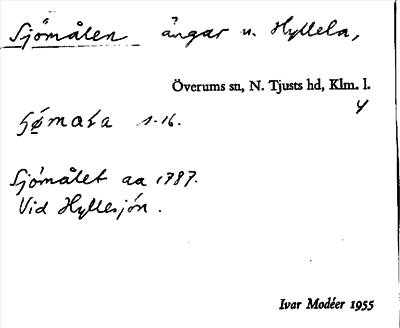 Sjömålen ängar u. Hyllela,
Överums sn, N. Tjusts hd, Klm. l.
4
s. 16.
Sjömålet aa 1787.
Vid Hyllesjön.
Ivar Modéer 1955